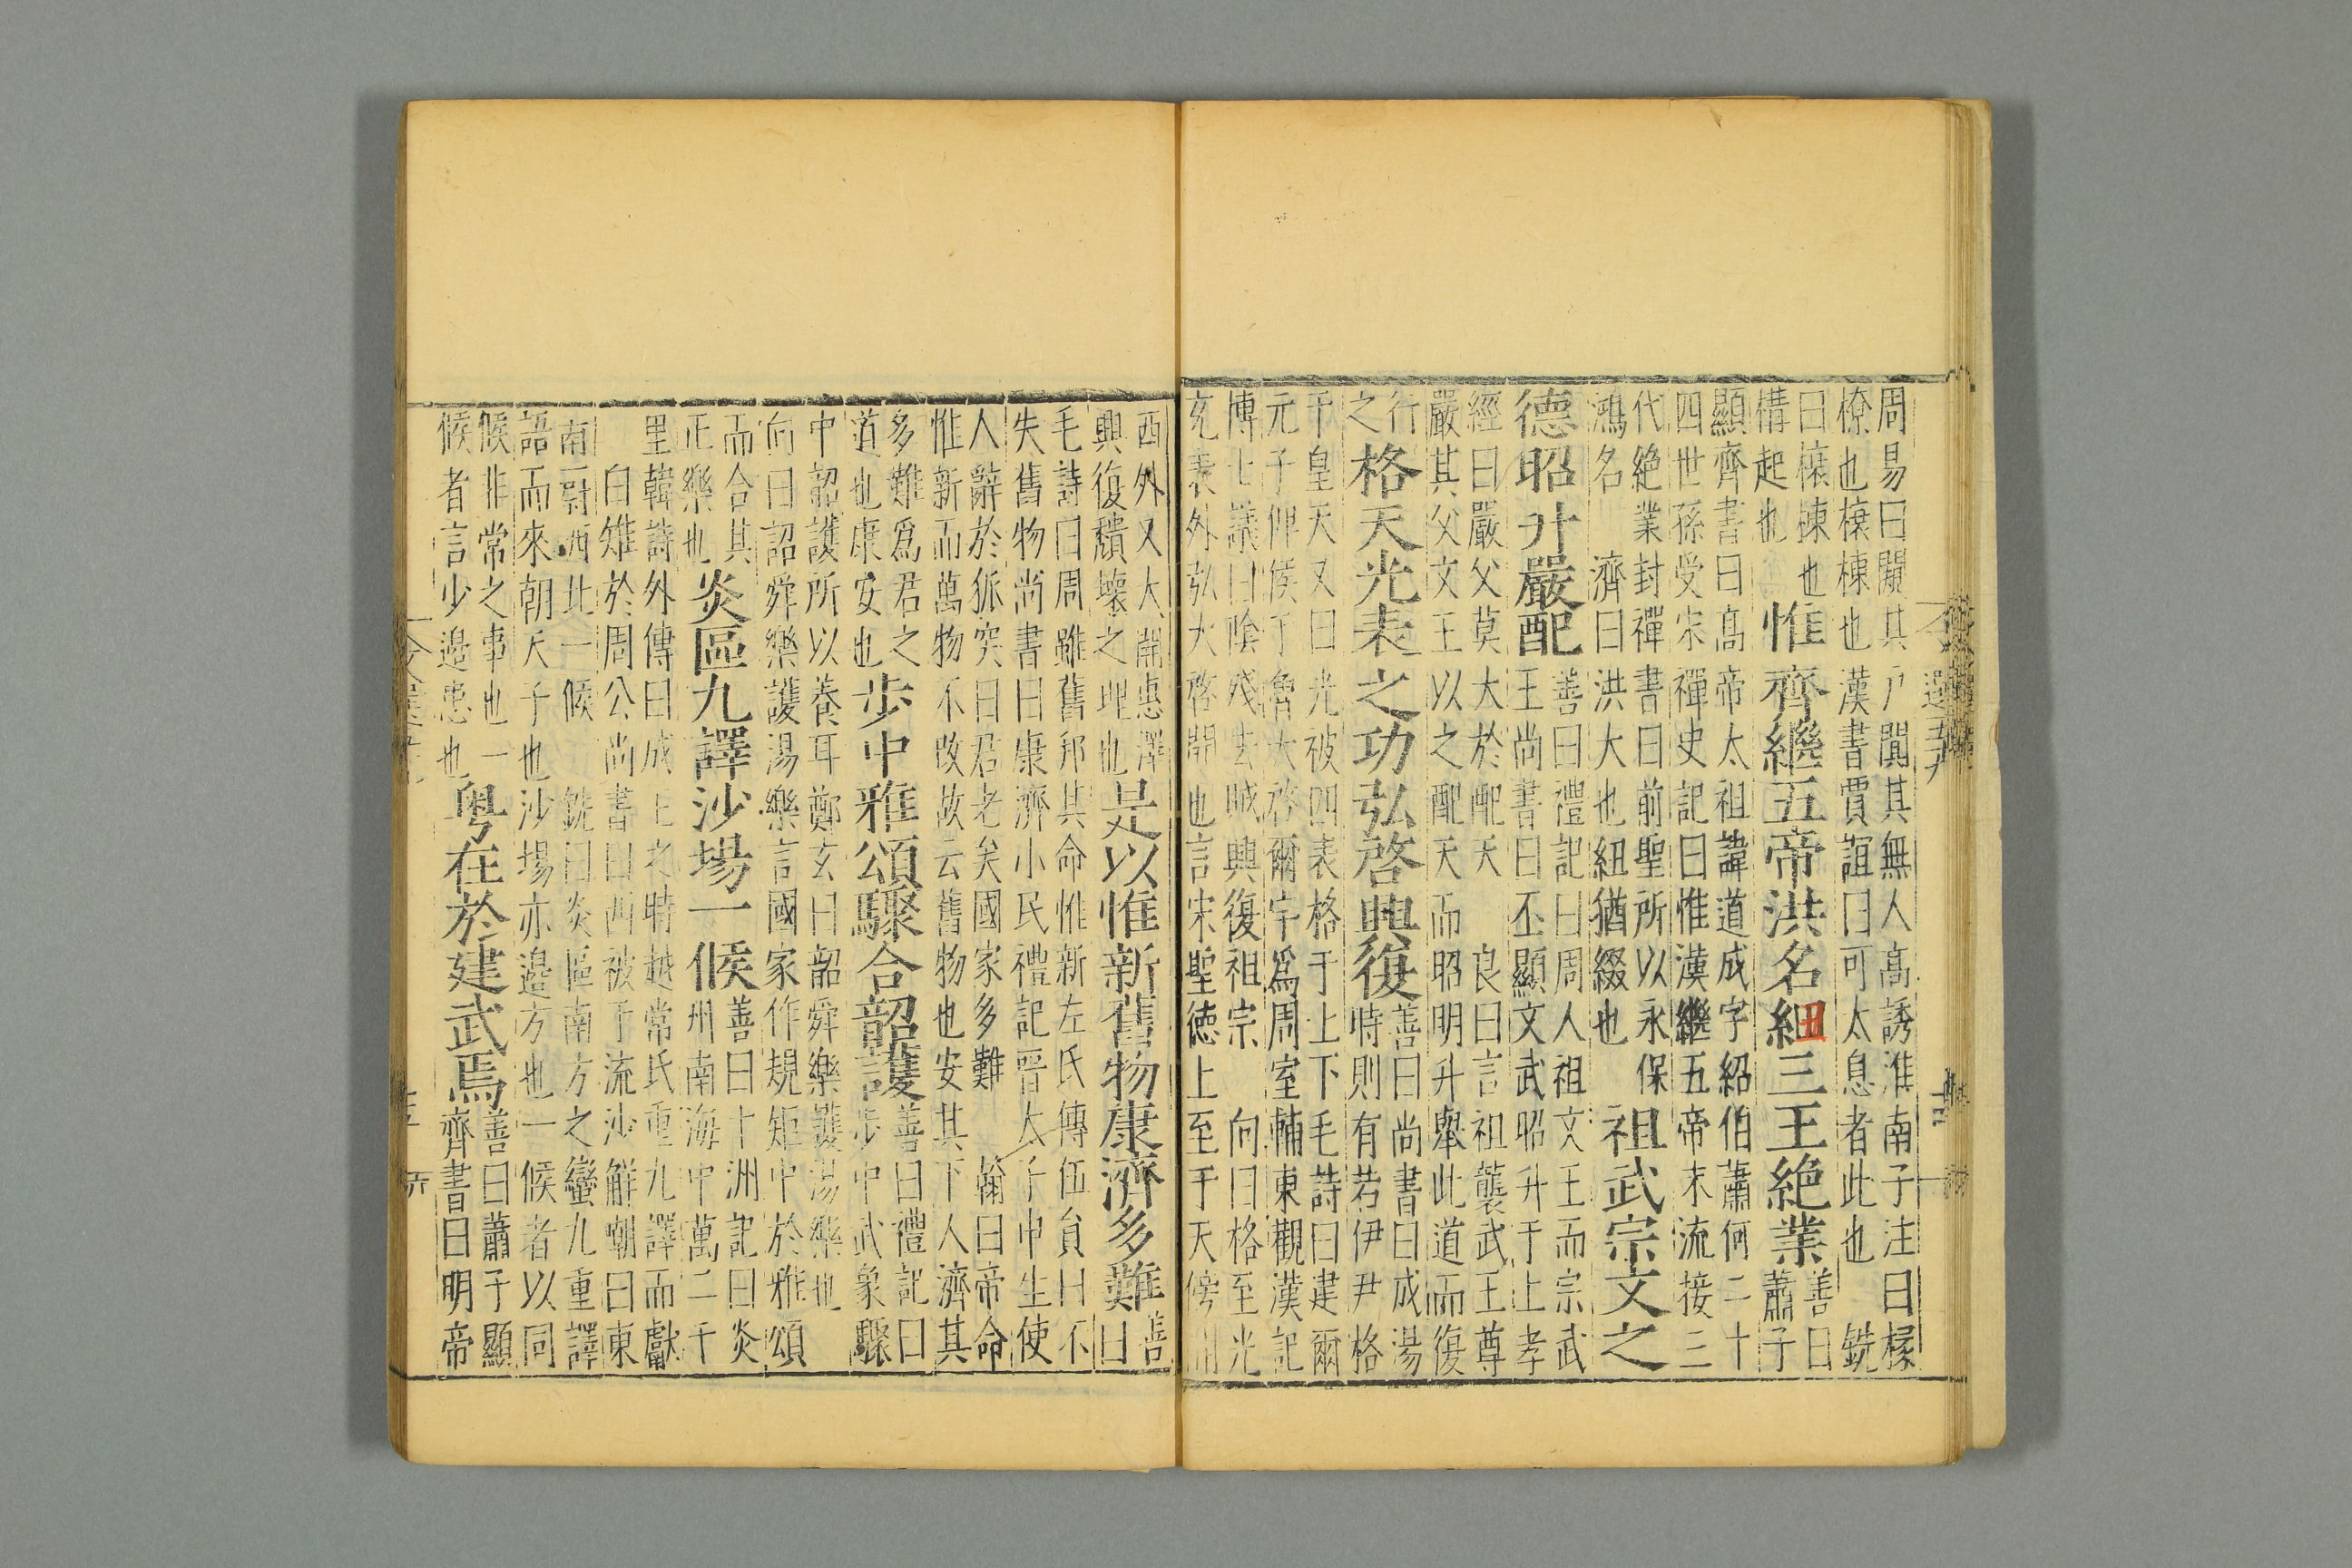 周易曰闚其戶闃其無人高誘淮南子注曰檼
橑也檼棟也漢書賈誼曰可太息者此也 銑
曰檼棟也
構起也
惟齊繼五帝洪名紐三王絕業
善曰
蕭子
顯齊書曰高帝太祖諱道成字紹伯蕭何二十
四世孫受宋禪史記曰惟漢繼五帝末流接三
代絕業封禪書曰前聖所以永保
鴻名 濟曰洪大也紐猶綴也
祖武宗文之
德昭升嚴配
善曰禮記曰周人祖文王而宗武
王尚書曰丕顯文武昭升于上孝
經曰嚴父莫大於配天 良曰言祖襲武王尊
嚴其父文王以之配天而昭明升舉此道而復
行
之
格天光表之功弘啓興復
善曰尚書曰成湯
時則有若伊尹格
于皇天又曰光被四表格于上下毛詩曰建爾
元子俾侯于魯大啓爾宇爲周室輔東觀漢記
博士議曰除殘去賊興復祖宗 向曰格至光
充表外弘大啓開也言宋聖德上至于天傍開
四外又大開惠澤
興復穨壞之理也
是以惟新舊物康濟多難
善
曰
毛詩曰周雖舊邦其命惟新左氏傳伍貟曰不
失舊物尚書曰康濟小民禮記晉太子申生使
人辭於狐突曰君老矣國家多難 翰曰帝命
惟新而萬物不改故云舊物也安其下人濟其
多難爲君之
道也康安也
步中雅頌驟合韶護
善曰禮記曰
步中武象驟
中韶護所以養耳鄭玄曰韶舜樂護湯樂也
向曰詔舜樂護湯樂言國家作規矩中於雅頌
而合其
正樂也
炎區九譯沙場一候
善曰十洲記曰炎
州南海中萬二千
里韓詩外傳曰成王之時越常氏重九譯而獻
白雉於周公尚書曰西被于流沙解嘲曰東
南一尉西北一候 銑曰炎區南方之蠻九重譯
語而來朝天子也沙場亦邊方也一候者以同
候非常之事也一
候者言少邊患也
粤在於建武焉
善曰蕭子顯
齊書曰明帝